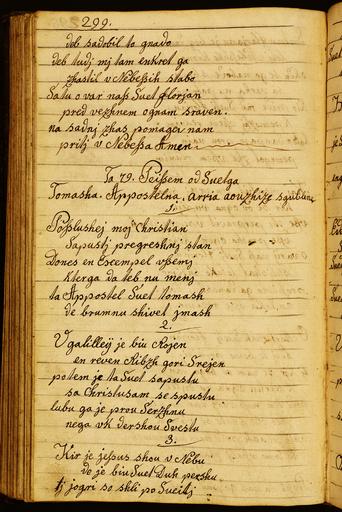 299.
deb sadobil to gnado
deb tudj mj tam enkrat ga
zhastil v Nebeshih stabo
Satu o var nash Suet florjan
pred vezhnem ognam sraven.
na sadnj zhas pomagei nam
pritj v Nebesha Amen
Ta 79. Peissem od Suetga
Tomasha. Appostelna. Arria
1.
Posslushej moj Christian
Sapustj pregreshnj stan
Dones en Excempel vsemj
kterga da teb na menj
ta Appostel Suet tomash
de brumnu shivet jmash
2.
V galilleij je biu Rojen
en reven Ribzh gori Srejen
potem je ta Suet sapustu
sa Christusam se spustu
lubu ga je prou Serzhnu
nega vk dershou Svestu
3.
Kir je jesus shou v Nebu
do je biu Suet Duh
tj jogri so shli po Sueitj